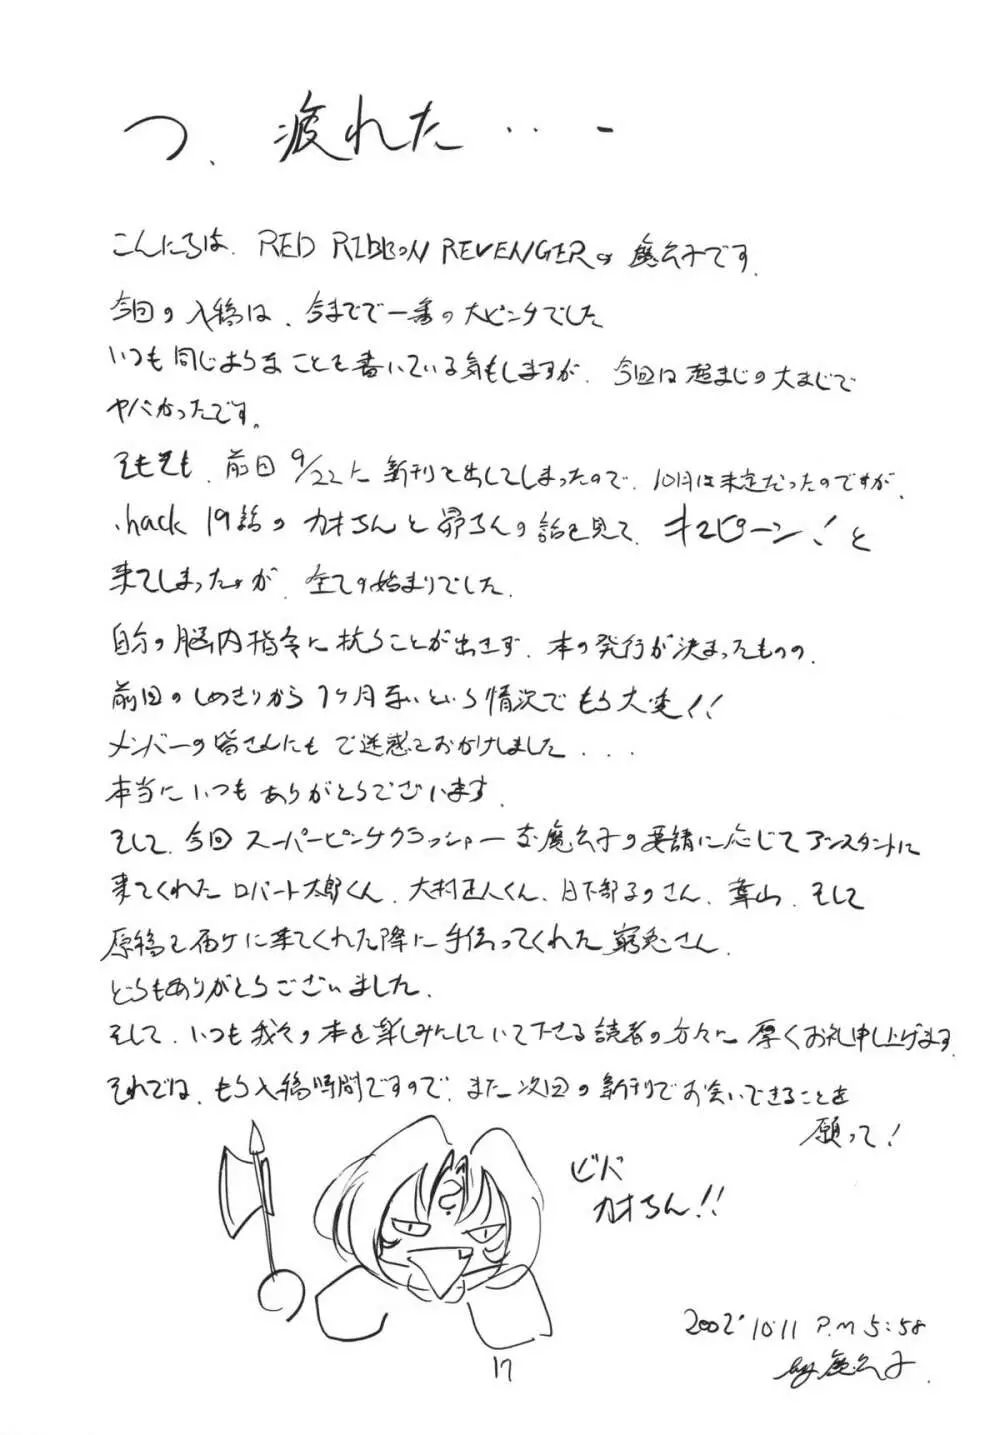 つ、疲れた・・・ー
こんにちは、RED RIBBON REVENGERの魔公子です。
今回の入稿は、今までで一番の大ピンチでした
いつも同じようなことを書いている気もしますが、今回は超まじの大まじで
ヤバかったです。
そもそも、前回9/22に新刊を出してしまったので、10月は未定だったのですが、
.hack 19話のカオちんと昴ちんの話を見て、キュピーン!と
来てしまったのが、全ての始まりでした。
自分の脳内指令に抗うことが出きず、本の発行が決まったものの、
前回のしめきりから1ヶ月無いという情況でもう大変!!
メンバーの皆さんにもご迷惑をおかけしました...
本当にいつもありがとうございます。
そして、今回スーパーピンチクラッシャーな魔公子の要請に応じてアシスタントに
来てくれたロバート太郎くん、大村正人くん、日下部るのさん、葉山、そして
原稿を届けに来てくれた際に手伝ってくれた窮兎さん、
どうもありがとうございました。
そして、いつも我々の本を楽しみにしていて下さる読者の方々に厚くお礼申し上げます。
それでは、もう入稿時間ですので、また次回の新刊でお会いできることを
願って!
ビバ
カオちん!!
2002' 10.11 P.M 5:58
by 魔公子.
17